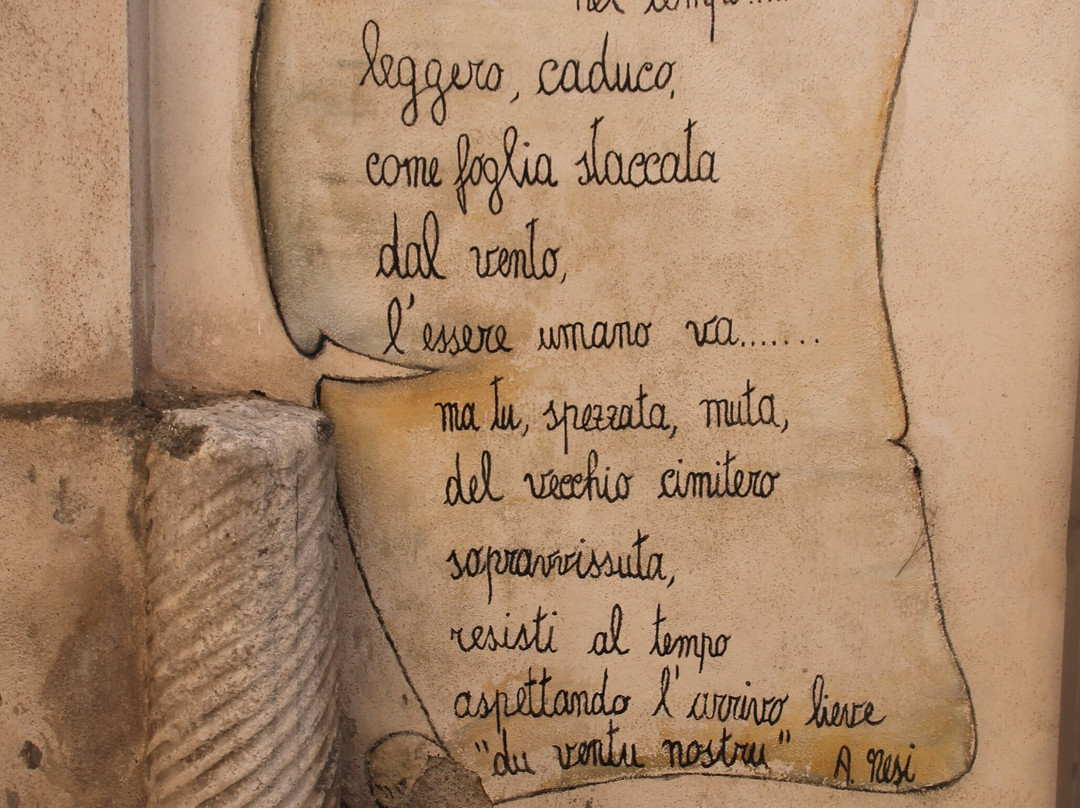 nel tempo.....
leggero, caduco,
come foglia staccata
dal vento,
l'essere umano va.......
ma tu, spezzata, muta,
del vecchio cimitero
sopravvissuta,
resisti al tempo
aspettando l'arrivo lieve
"du ventu nostru" A. Nesi